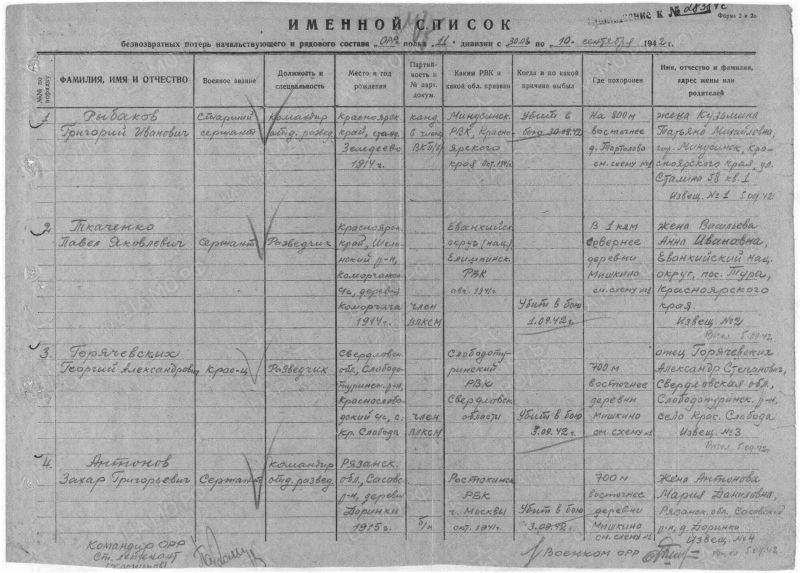 Приложение к №
Форма 2 и 2а
ИМЕННОЙ СПИСОК
безвозвратных потерь начальствующего и рядового состава "ОРР" полка 11 дивизии с 30.08 по "10" сентября 1942 г.
№№ по порядку
ФАМИЛИЯ, ИМЯ И ОТЧЕСТВО
Военное звание
Должность и специальность
Место и год рождения
Партийность и № парт. докум.
Каким РВК и какой обл. призван
Когда и по какой причине выбыл
Где похоронен
Имя, отчество и фамилия, адрес жены или родителей
1
Рыбаков
Григорий Иванович
Старший
сержант
Командир
отд. развед.
Красноярск.
край,
1914 г.
канд.
в члены
ВКП/б/
Минусинск.
РВК, Красно-
ярского
края
Убит в
бою 30.08.42
На 800 м
восточнее
д.
см. схему №1
жена Кузьмина
Татьяна Михайловна,
гор. Минусинск, Кра-
сноярского края, ул.
Сталина 58 кв. 1
Извещ. №1 5.09.42
2
Ткаченко
Павел Яковлевич
Сержант
Разведчик
Красноярск.
край,
р-н,
деревня
1914 г.
член
ВЛКСМ
Эванкийск.
округ (нац.)
РВК
авг. 1941 г.
Убит в бою
1.09.42 г.
В 1 клм
севернее
деревни
Мишкино
см. схему №1
жена Васильева
Анна Ивановна,
Еванкийский нац.
округ, пос. Тура,
Красноярского
края.
Извещ. №2
5.09.42
3.
Горячевских
Георгий Александрович
Крас-ц
Разведчик
Свердловск.
обл., Слободо-
туринск. р-н,
Краснослобо-
дский с/с, с.
кр. Слобода
член
ВЛКСМ
Слободоту-
ринский
РВК
Свердловск.
области
Убит в бою
3.09.42 г.
700 м
восточнее
деревни
Мишкино
см. схему №1
отец Горячевских
Александр Степанович,
Свердловская обл.,
Слободотуринск. р-н,
село Крас. Слобода
Извещ. №3
5.09.42
4.
Антонов
Захар Григорьевич
Сержант
командир
отд. развед.
Рязанск.
обл., Сасовс.
р-н, деревня
Доринки
1915 г.
б/п
Ростокинск
РВК
г. Москвы
окт. 1941 г.
Убит в бою
3.09.42 г.
700 м
восточнее
деревни
Мишкино
см. схему №1
жена Антонова
Мария Даниловна,
Рязанск. обл. Сасовский
р-н, д. Доринки
Извещ. №4
5.09.42
Командир ОРР
Ст. лейтенант
Военком ОРР